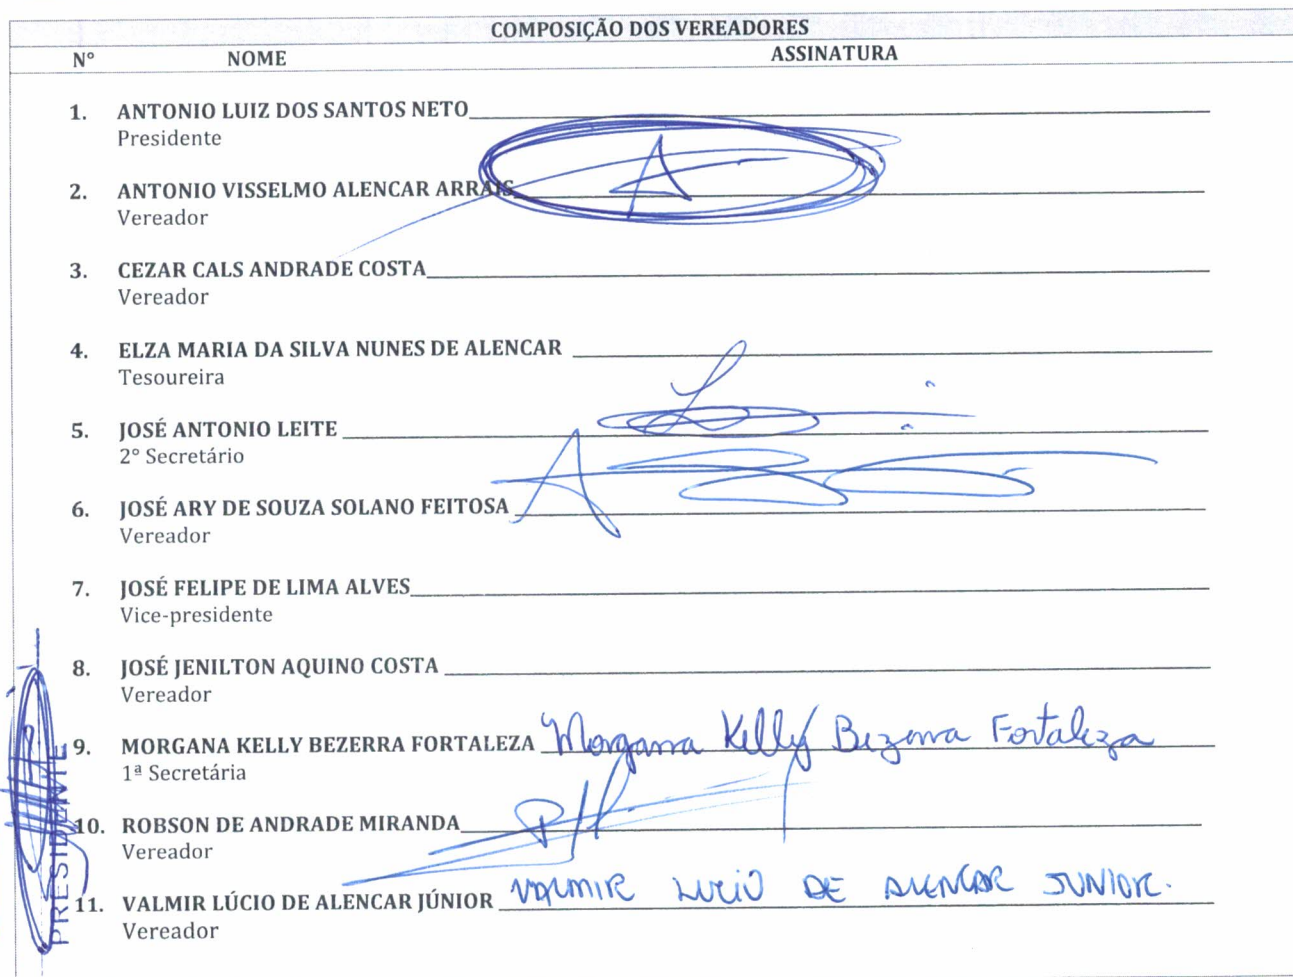 COMPOSIÇÃO DOS VEREADORES
N° NOME ASSINATURA
1. ANTONIO LUIZ DOS SANTOS NETO
Presidente
2. ANTONIO VISSELMO ALENCAR ARRAIS
Vereador
3. CEZAR CALS ANDRADE COSTA
Vereador
4. ELZA MARIA DA SILVA NUNES DE ALENCAR
Tesoureira
5. JOSÉ ANTONIO LEITE
2° Secretário
6. JOSÉ ARY DE SOUZA SOLANO FEITOSA
Vereador
7. JOSÉ FELIPE DE LIMA ALVES
Vice-presidente
8. JOSÉ JENILTON AQUINO COSTA
Vereador
9. MORGANA KELLY BEZERRA FORTALEZA Morgana Kelly Bezerra Fortaleza
1ª Secretária
10. ROBSON DE ANDRADE MIRANDA
Vereador
11. VALMIR LÚCIO DE ALENCAR JÚNIOR VALMIR LUCIO DE ALENCAR JUNIOR.
Vereador
PRESIDENTE